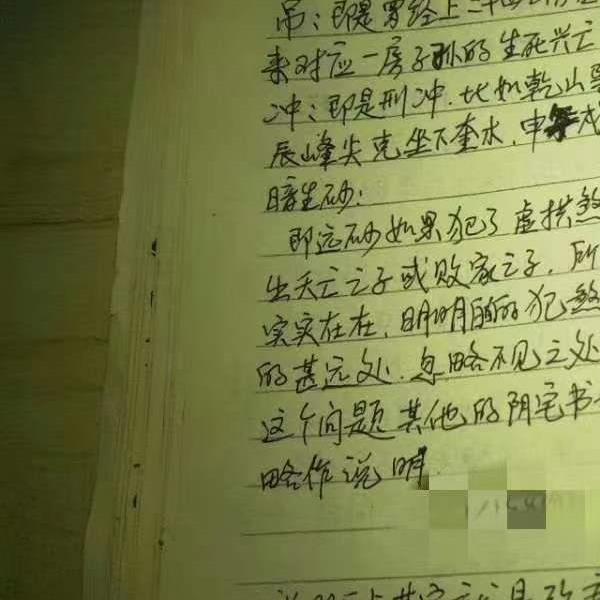 吊：即是曾经上二十四
来对应一房子孙的生死兴亡
冲：即是刑冲．比如乾山
辰峰尖克坐下奎水．申戌
暗生砂：
即远砂如果犯了虚拱煞
出夭亡之子或败家之子．所
实实在在．明明的犯煞
的甚远处．忽略不见之处
这个问题其他的阴宅书
略作说明．